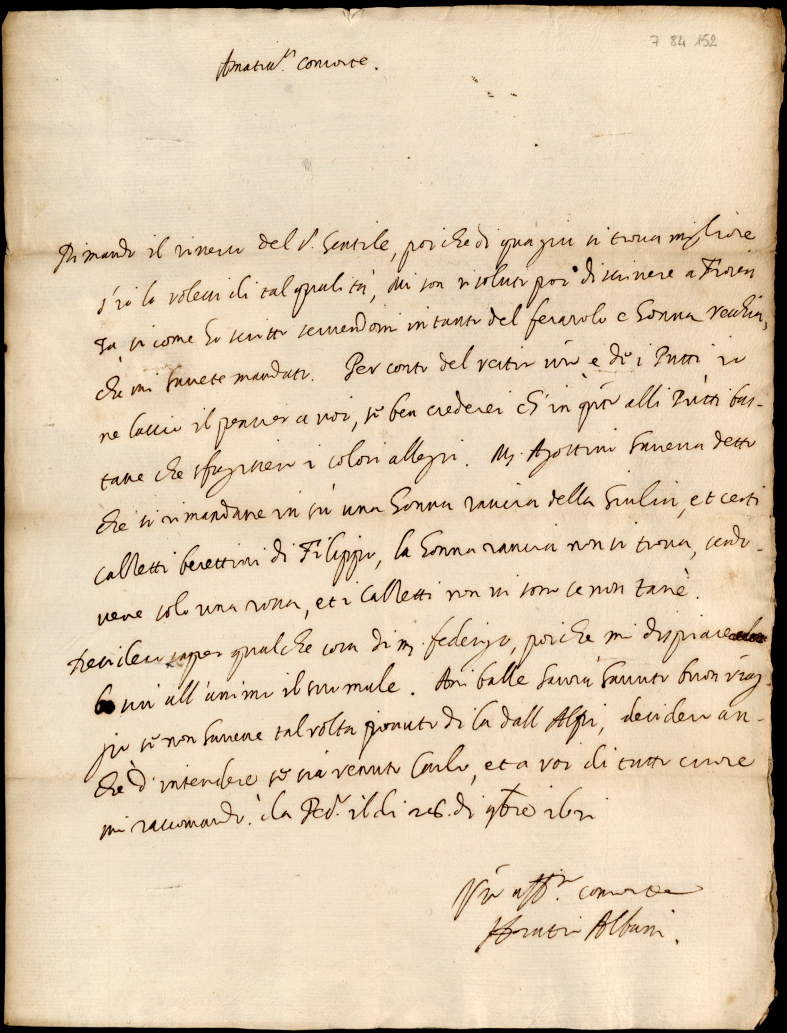 7 84 152
Amatiss.ᵃ consorte.
Rimando il rinerso del S. Gentile, poi che di qua giu si trova migliore
s'io lo volessi di tal qualità, mi son risoluto poi di scrivere a Fioren
za si come ho scritto servendomi in tanto del feraiolo e Sonna vecchia,
che mi havete mandato. Per conto del vestir vro e dẽ i Putti io
ne lascio il pensier a voi, se ben crederei ch' in qto alli Putti bas-
tasse che sfugissero i colori allegri. Mʳ Agostino haveva detto
che si rimandasse in su una Sonna rancia della Giulia, et certi
calzetti berettini di Filippo, la Sonna rancia non si trova, sendo-
vene solo una rossa, et i calzetti non vi sono se non tanè.
Desidero saper qualche cosa di mʳ federigo, poiche mi dispiace
sin all'anima il suo male. Anibale havrà havuto buon viag-
gio se non havesse tal volta piovuto di la dall Alpi, desidero an-
che d'intendere se sia venuto Carlo, et a voi di tutto cuore
mi raccomando. il di 28. di 9bre
Vro aff.ᵐᵒ consorte
Horatio Albani.